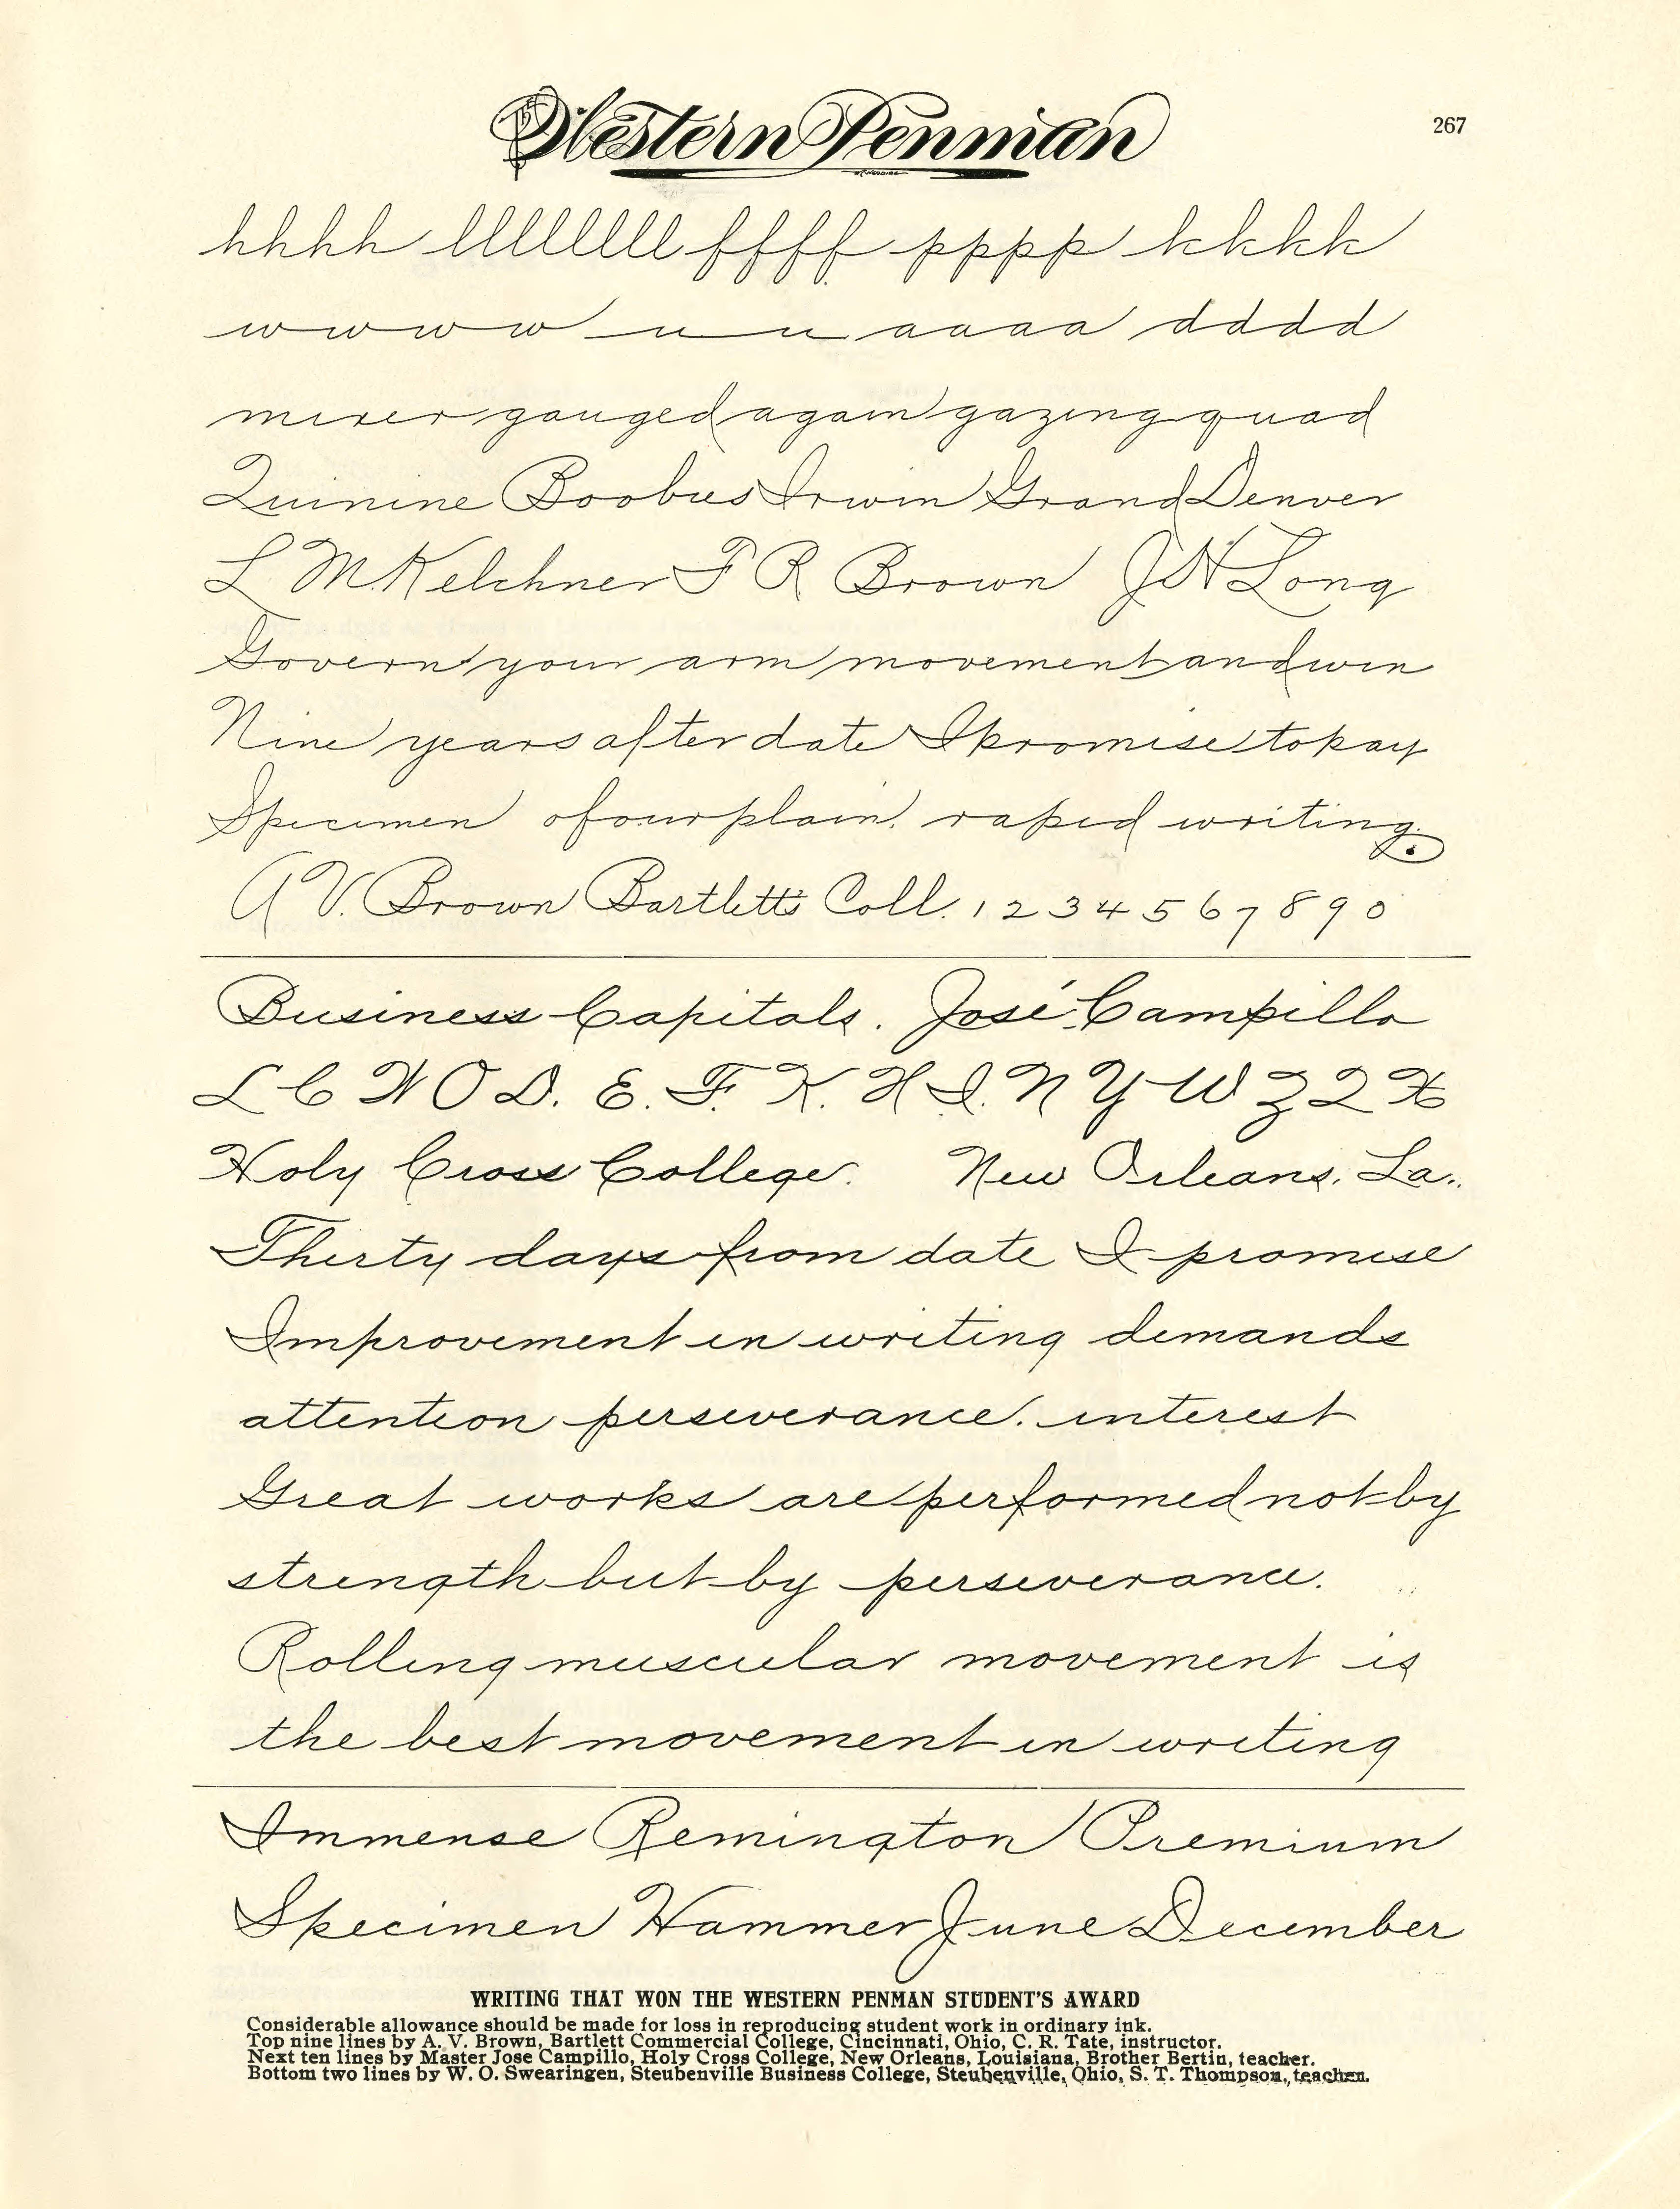 Western Penman
267
hhhh llllllll ffff pppp kkkk
wwww u u aaaa dddd
mixer gauged again gazing quad
Quinine Boobies Irwin Grand Denver
L M Kelchner F R Brown J H Long
Govern your arm movement and win
Nine years after date I promise to pay
Specimen of our plain, rapid writing.
A V. Brown Bartlett's Coll. 1 2 3 4 5 6 7 8 9 0
Business Capitals. José Campillo
L C W O D. E. F. K. H I. N Y W Z Q X
Holy Cross College. New Orleans, La..
Thirty days from date I promise
Improvement in writing demands
attention perseverance. interest
Great works are performed not by
strength but by perseverance.
Rolling muscular movement is
the best movement in writing
Immense Remington Premium
Specimen Hammer June December
WRITING THAT WON THE WESTERN PENMAN STUDENT'S AWARD
Considerable allowance should be made for loss in reproducing student work in ordinary ink.
Top nine lines by A. V. Brown, Bartlett Commercial College, Cincinnati, Ohio, C. R. Tate, instructor.
Next ten lines by Master Jose Campillo, Holy Cross College, New Orleans, Louisiana, Brother Bertin, teacher.
Bottom two lines by W. O. Swearingen, Steubenville Business College, Steubenville, Ohio, S. T. Thompson, teacher.